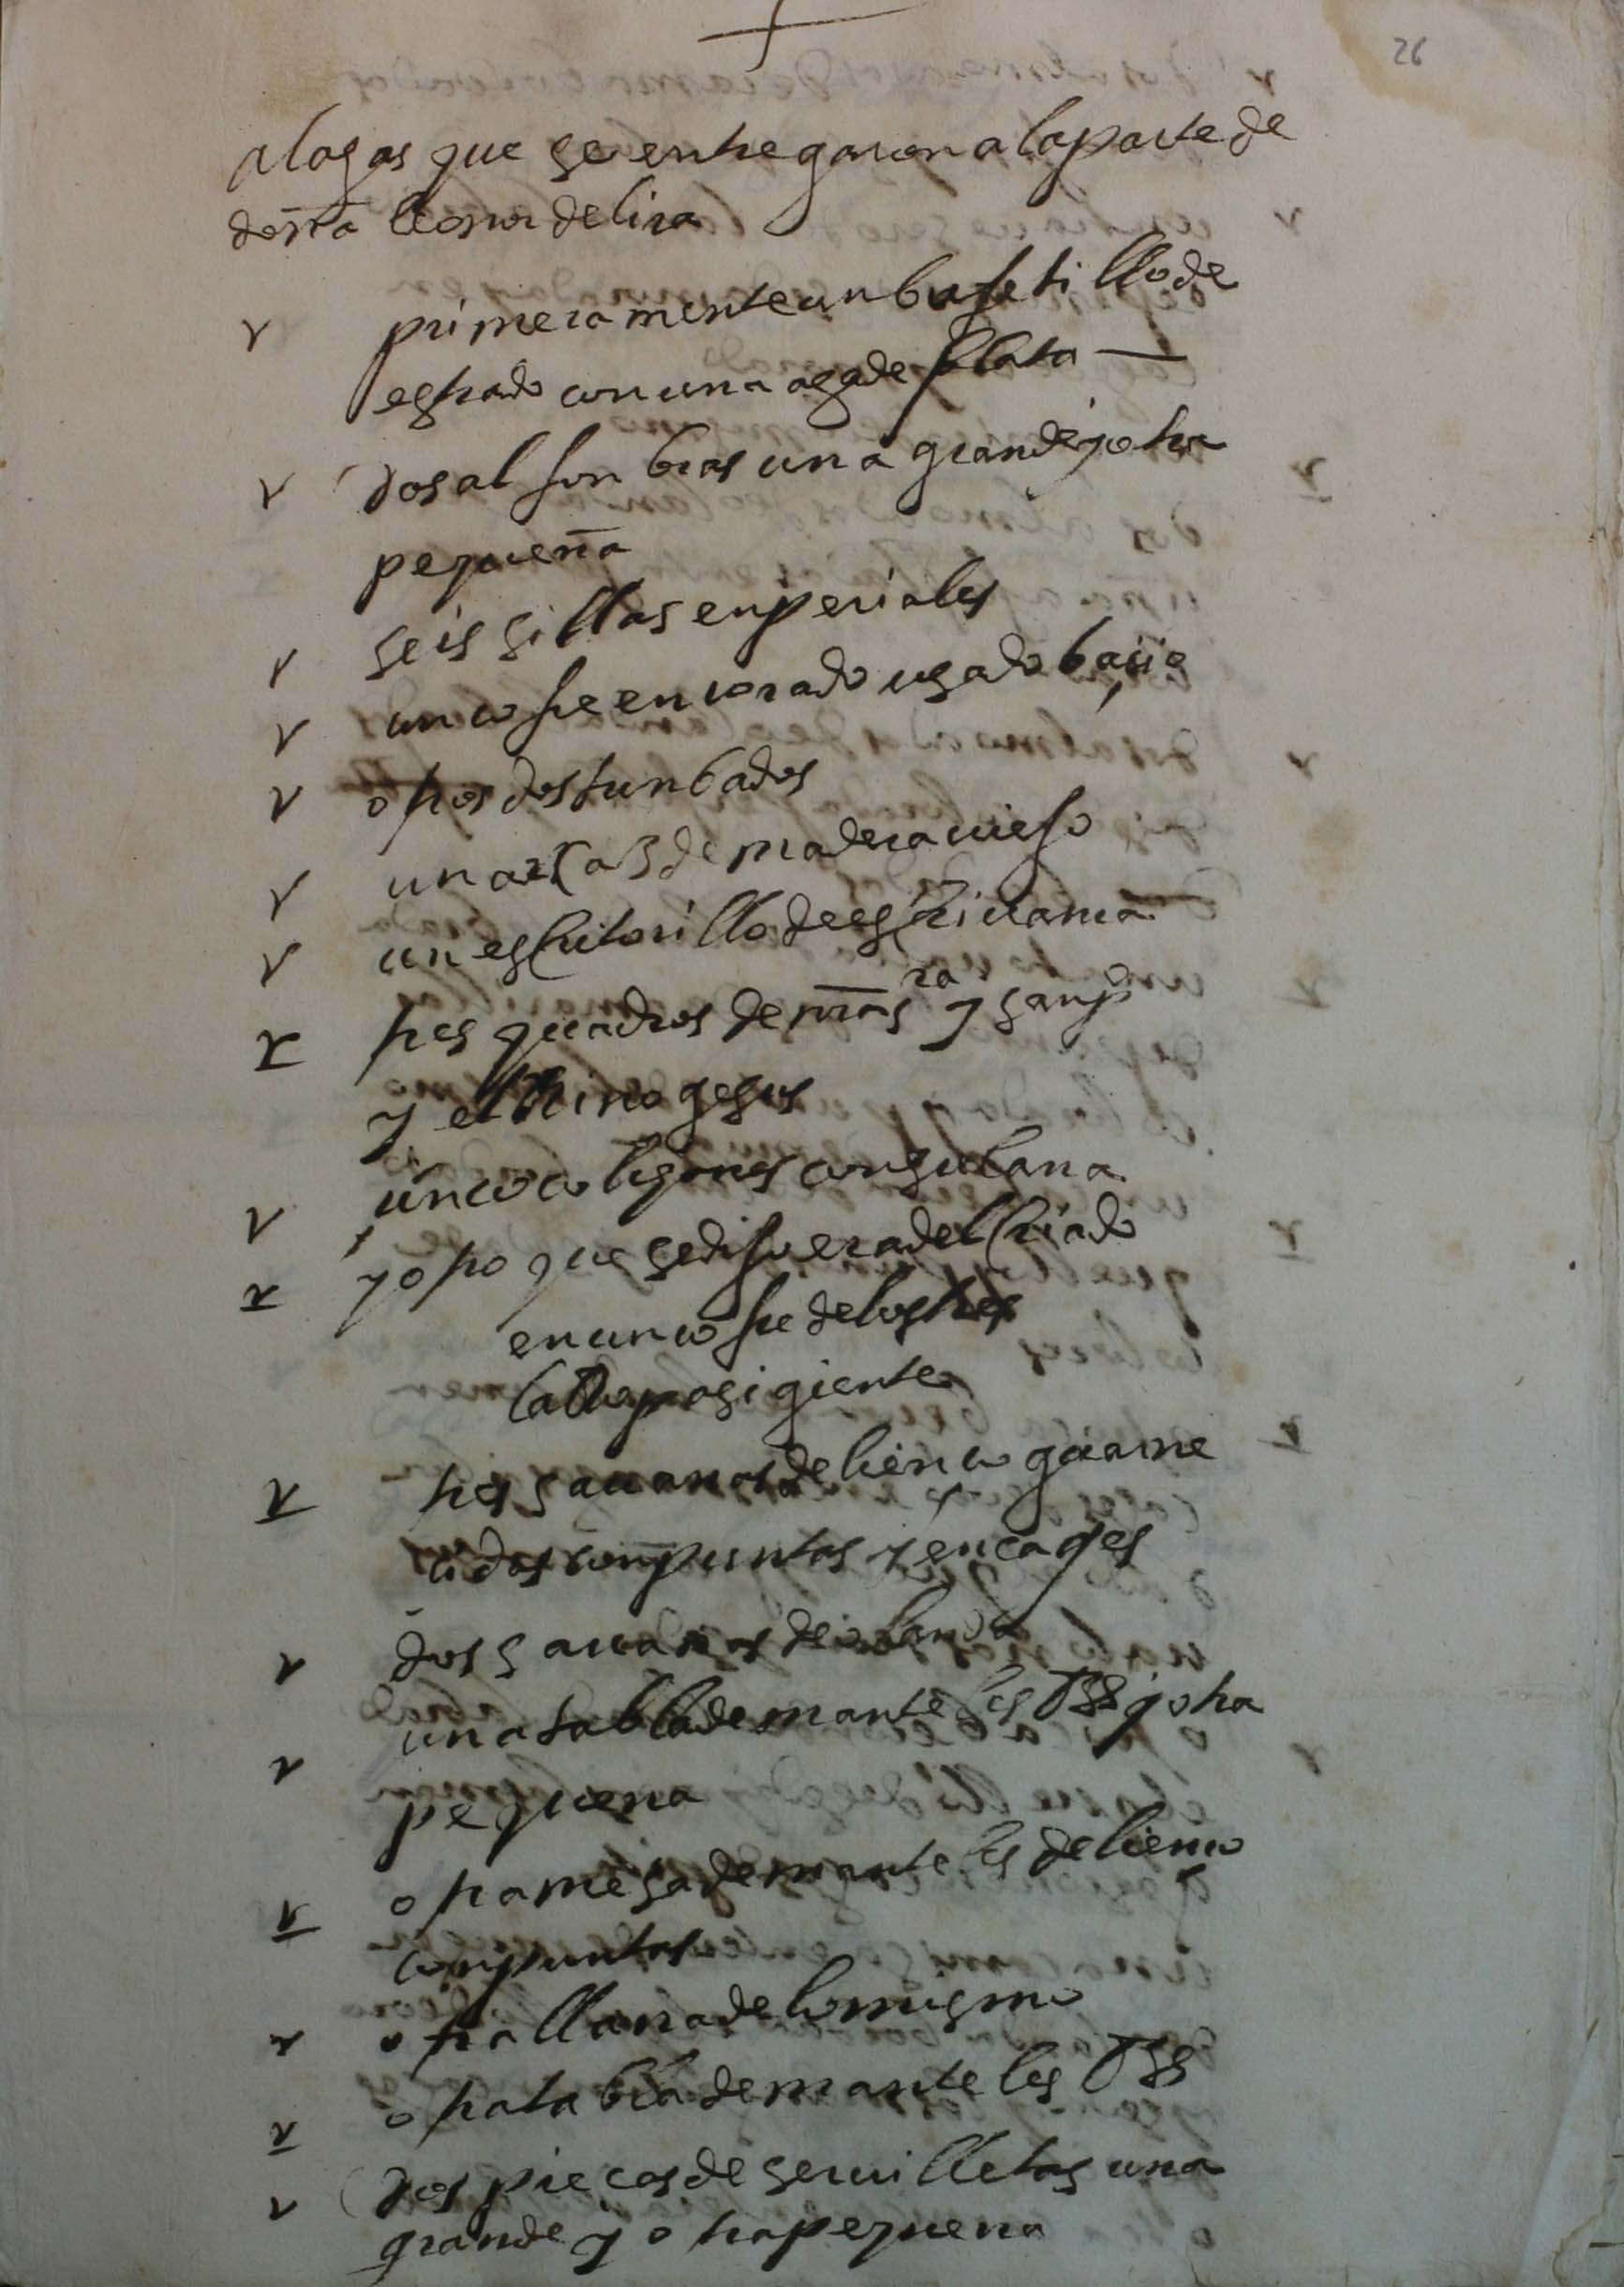 26
alagas que se entregaron a la parte de
doña leonor de lira
primeramente un bufetillo de
estrado con una asa de plata
dos alfonbras una grande y otra
pequeña
seis sillas enperiales
un cofre encorado usado bajio
otros dos tunbados
un de madera uiejo
un escritorillo de escriuania
tres quadros de nra sra y san
y el nino gesus
un coco
y otro que se dijo era del criado
en un cofre de los tres
la rropa sigiente
tres sauanas de lienco guarne
cidas con puntas y encages
dos sauanas de olanda
una tabla de manteles y otra
pequena
otra mesa de manteles de lienco
con puntas
otra llana de lo mismo
otra tabla de manteles
dos piecas de seruilletas una
grande y otra pequena